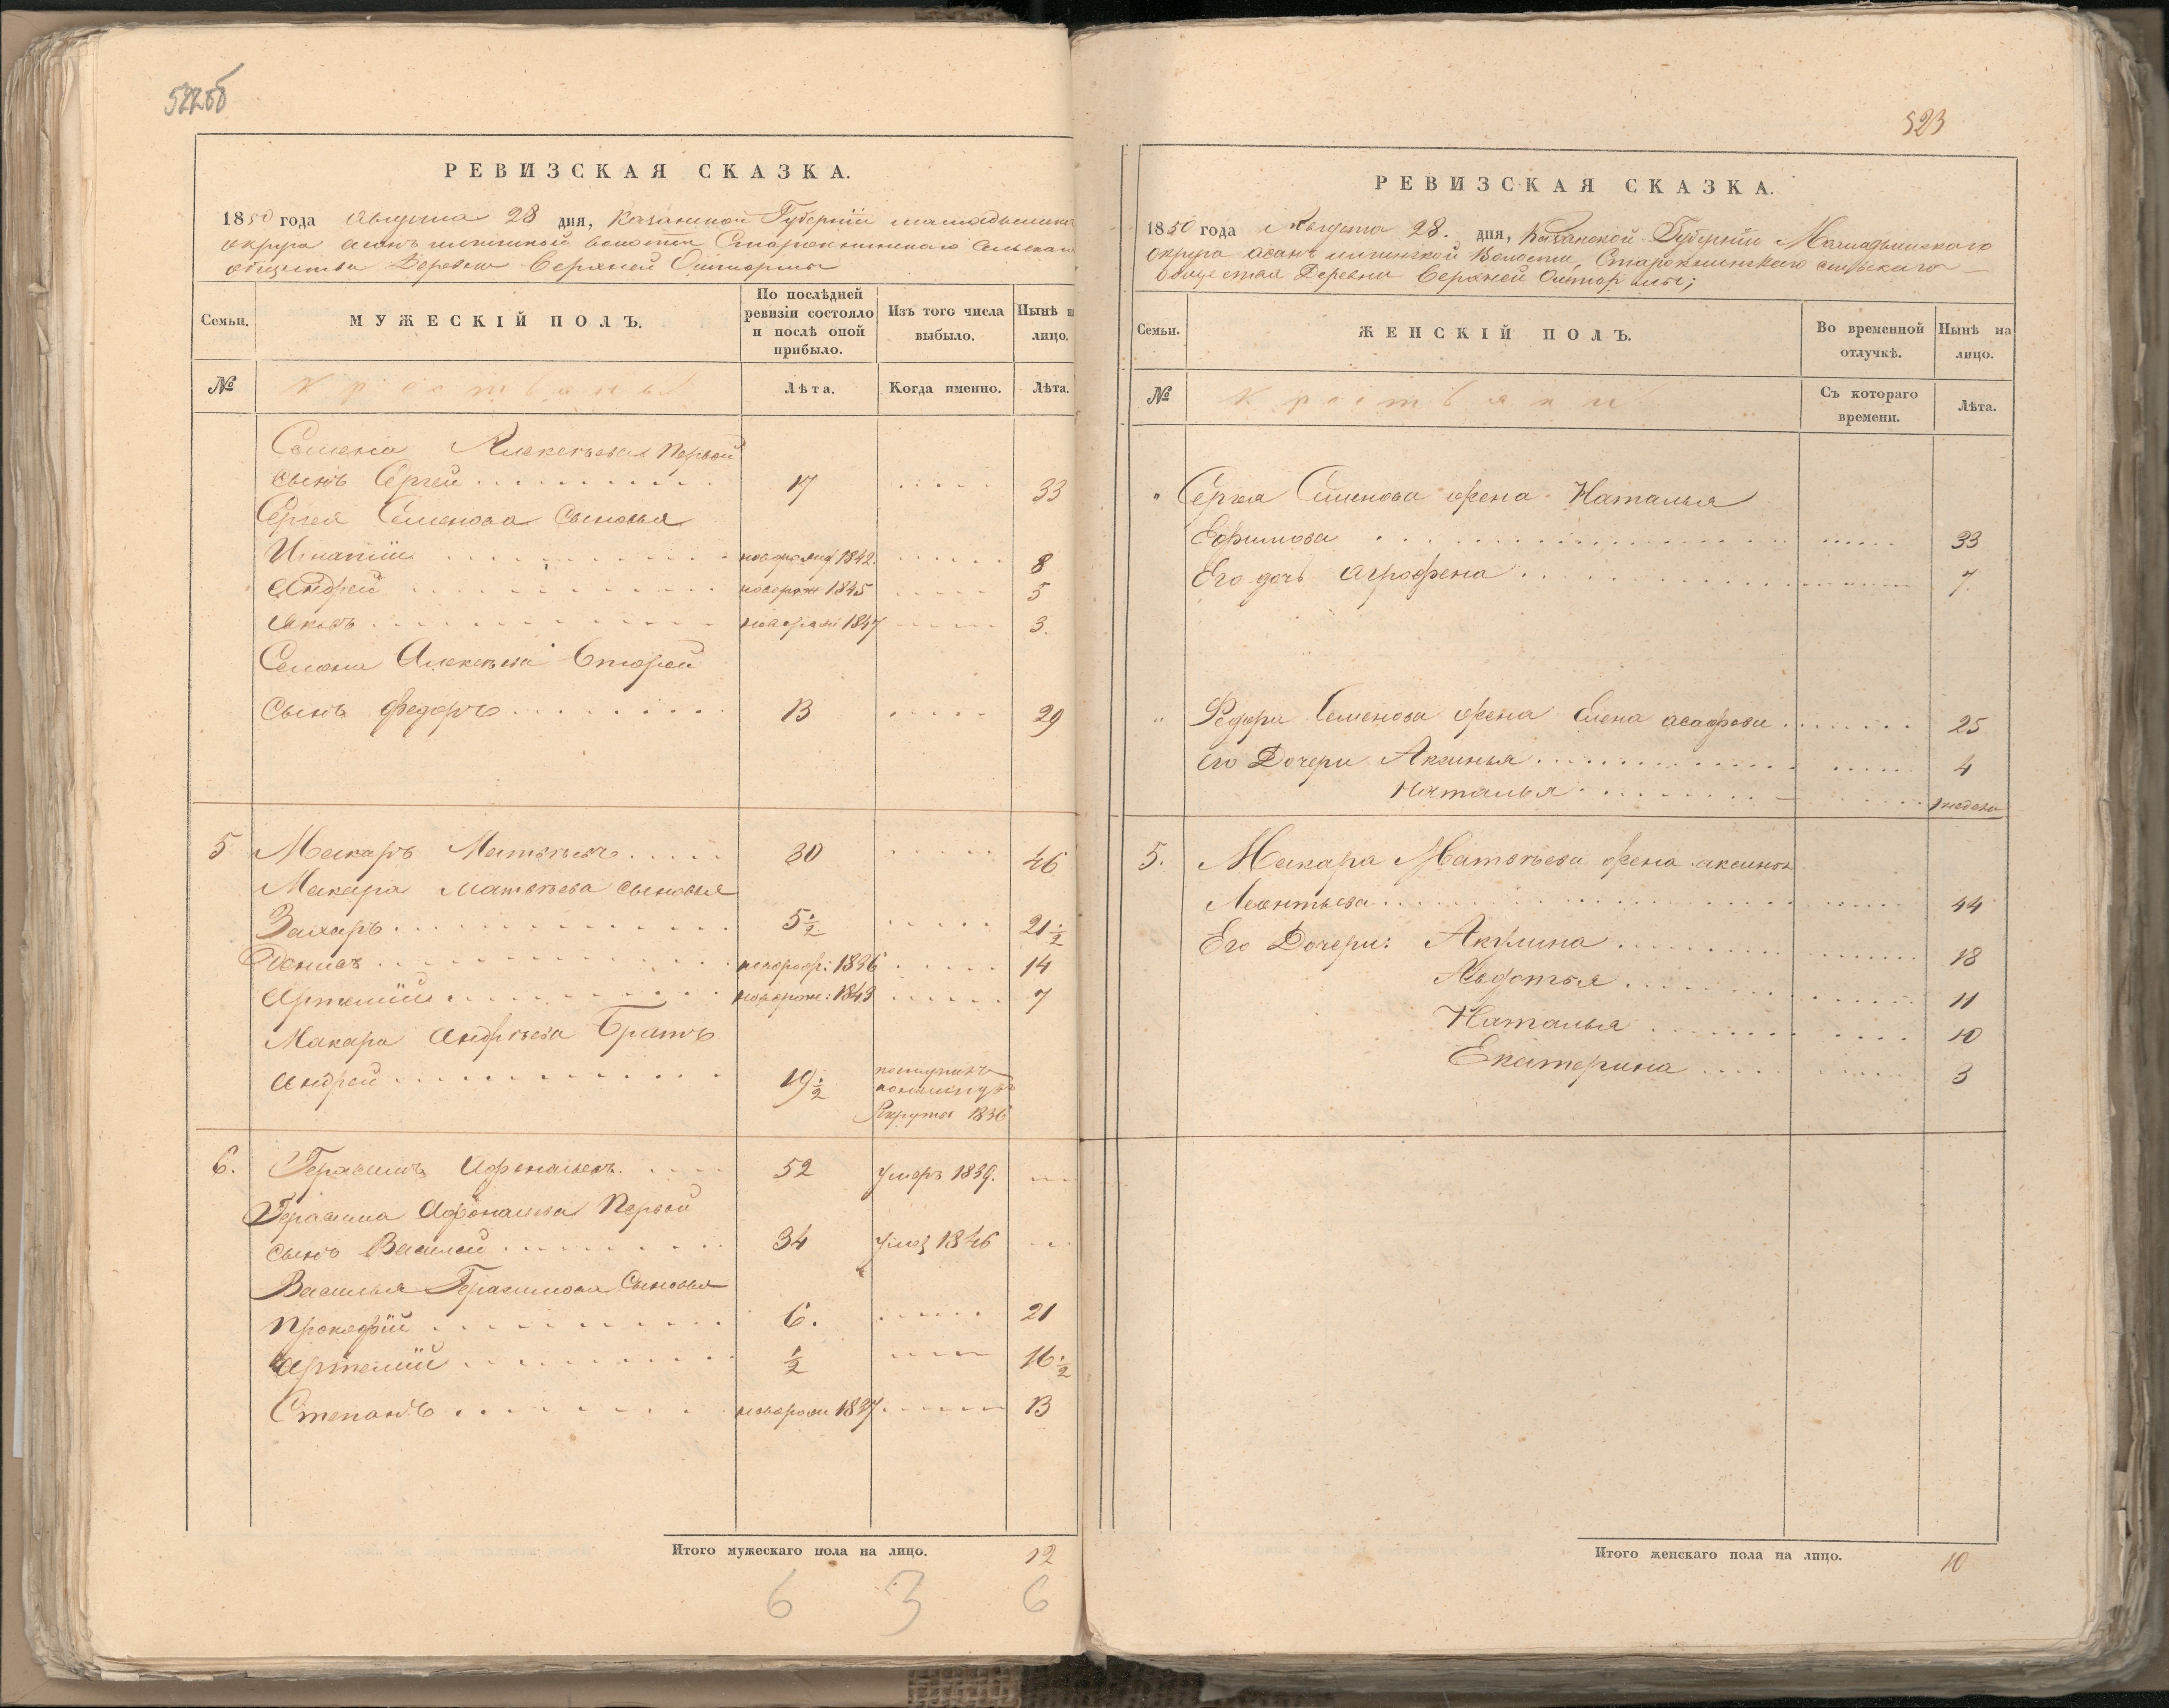 522об
РЕВИЗСКАЯ СКАЗКА.
1850 года Августа 28 дня, Казанской Губерніи
округа волости Сельскаго
общества Деревни Верхней Оштормы
Семьи.
МУЖЕСКІЙ ПОЛЪ.
По послѣдней ревизіи состояло и послѣ оной прибыло.
Изъ того числа выбыло.
Нынѣ на лицо.
№
Крестьяны
Лѣта.
Когда именно.
Лѣта.
Семена Алексѣева Первой
сынъ Сергей 17 33
Сергея Семенова сыновья
Игнатій 1842. 8
Андрей новорож 1845 5
Яковъ 1847 3.
Семена Алексѣева Второй
Сынъ Федоръ 13 29
5 Макаръ Матвѣевъ 30 46
Макара Матвѣева сыновья
Захаръ 5 1/2 21 1/2
Денисъ новорож: 1836 14
Артемій новорож: 1843 7
Макара Андрѣева Братъ
Андрей 19 1/2
Рекруты 1836
6. Герасимъ Афонасьевъ. 52 умеръ 1839.
Герасима Афонасьева Первой
сынъ Василей 34 умер 1846
Василья Герасимова Сыновья
Прокофій 6. 21
Артемій 1/2 16 1/2
Степанъ новорож 1837 13
Итого мужескаго пола на лицо. 12
6 3 6
523
РЕВИЗСКАЯ СКАЗКА.
1850 года Августа 28. дня, Казанской Губерніи Мамадышскаго
округа Волости, сельскаго
общества Деревни Верхней Ошторммы;
Семьи.
ЖЕНСКІЙ ПОЛЪ.
Во временной отлучкѣ.
Нынѣ на лицо.
№
Крестьяны
Съ котораго времени.
Лѣта.
" Сергея Семенова жена Наталья
Ефимова 33
Его дочь Агрофена 7.
" Федора Семенова жена Елена асафова 25
его Дочери Аксинья 4
Наталья 1 недели
5. Макара Матвѣева жена аксинья
Леонтьева 44
Его Дочери: Акулина 18
Авдотья 11
Наталья 10
Екатерина 3
Итого женскаго пола на лицо. 10